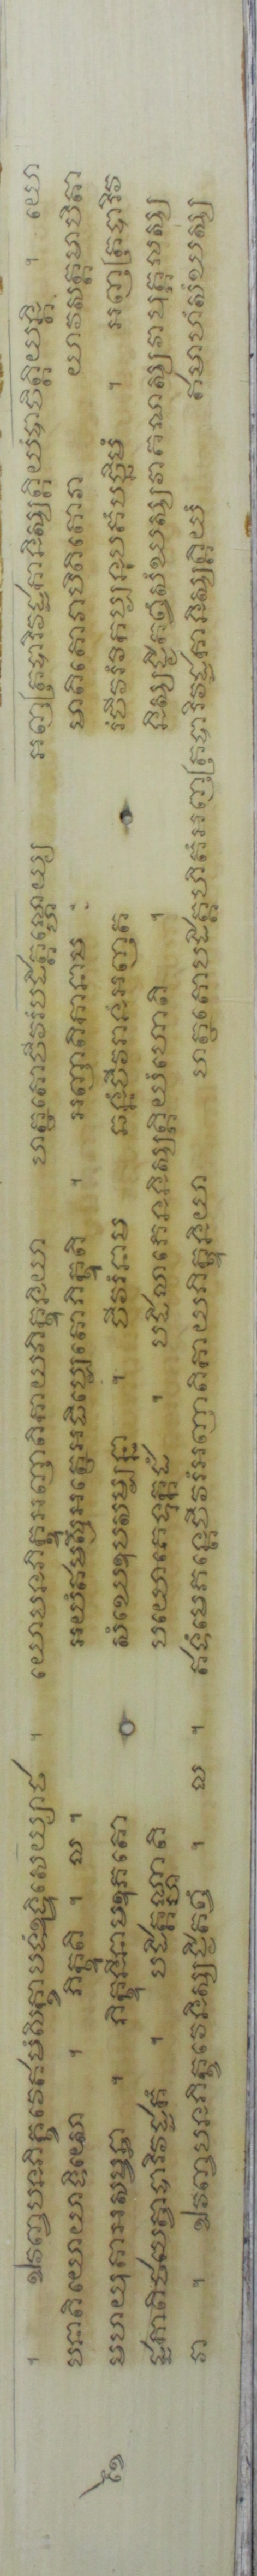 ។ ឯវញ្ចបនភិក្ខវេឥមំសិក្ខាបទំឧទ្ទិសេយ្យាថ ។ យោបនភិក្ខុអញ្ញាតិកាយភិក្ខុនិយា ហត្ថតោចីវរំបដិគ្គណ្ហេយ្យ អញត្របារិវដ្ដកានិស្សគ្គិយំបាចិត្តិយន្តិ ។ យោ
បនាតិយោយាទិសោ ។ ភិក្ខូតិ ។ ល ។ អយំឥមស្មិំអត្ថេអធិប្បេតោភិក្ខូតិ ។ អញ្ញាតិកានាម ៈ មាតិតោវាបិតិតោវា យាវសត្តមាបិតា
មហយុគាអសម្ពន្ធា ។ ភិក្ខុនីនាមឧភតោ សំឃេឧបសម្បន្នា ។ ចីវរំនាម ឆន្នំចីវរានំអញត រំចីវរំវិកប្បនុបគំបច្ឆិមំ ។ អញត្របារិវ
ដ្ដកាតិថបេត្វាបារិវដ្ដកំ ។ បដិគ្គណ្ហាតិ បយោគេទុក្កដំ ។ បដិលាភេននិស្សគ្គិយំហោតិ ។ និស្សជ្ជិតព្វំសំឃស្សវាគណស្សវាបុគ្គលស្ស
វា ។ ឯវញ្ចបនភិក្ខវេនិស្សជ្ជិតព្វំ ។ ល ។ ឥទំមេភន្តេចីវរំអញ្ញាតិកាយភិក្ខុនិយា ហត្ថតោបដិគ្គហិតំអញត្របារិវដ្ដកានិស្សគ្គិយំ ឥមាហំសំឃស្ស